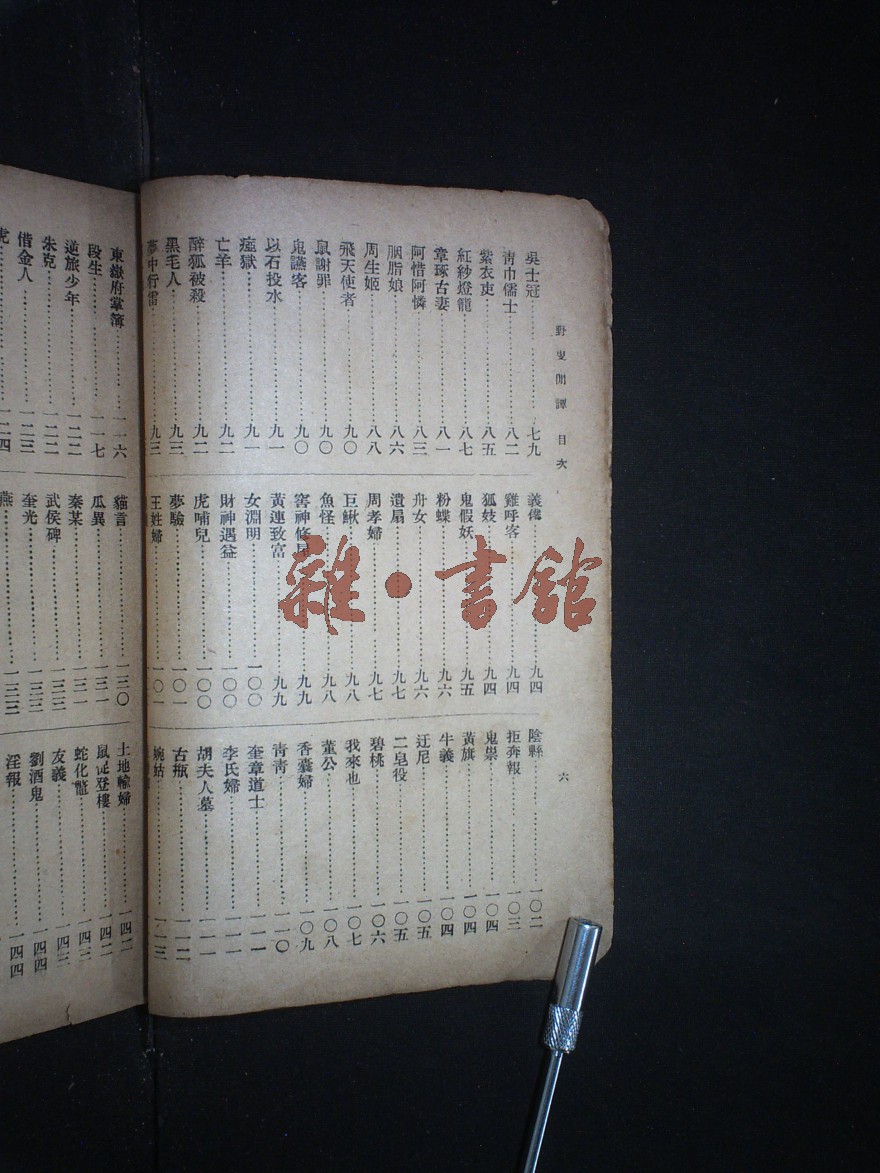 野叟閒譚 目次
六
吳士冠……七九
青巾儒士……八二
紫衣吏……八五
紅紗燈籠……八七
章琢古妻……八一
阿惜阿憐……八三
胭脂娘……八六
周生姬……八八
飛天使者……九〇
鼠謝罪……九〇
鬼讌客……九〇
以石投水……九一
瘟獄……九一
亡羊……九二
醉狐被殺……九二
黑毛人……九三
夢中行雷……九三
義傭……九四
雞呼客……九四
狐妓……九四
鬼假妖……九五
粉蝶……九六
舟女……九六
遺扇……九七
周孝婦……九七
巨鰍……九八
魚怪……九八
窖神修屋……九九
黃連致富……九九
女淵明……一〇〇
財神遇益……一〇〇
虎哺兒……一〇〇
夢驗……一〇一
王姓婦……一〇一
陰縣……一〇二
拒奔報……一〇三
鬼祟……一〇四
黃旗……一〇四
牛義……一〇四
迂尼……一〇五
二皂役……一〇五
碧桃……一〇六
我來也……一〇七
董公……一〇八
香囊婦……一〇九
青青……一一〇
奎章道士……一一一
李氏婦……一一一
胡夫人墓……一一一
古瓶……一一二
婉姑……一一三
東嶽府掌簿……一一六
段生……一一七
逆旅少年……一二二
朱克……一二二
借金人……一二三
虎……一二四
貓言……一三〇
瓜異……一三一
秦某……一三一
武侯碑……一三三
奎光……一三三
燕……一三三
土地輸婦……一四二
鼠從登樓……一四二
蛇化鼈……一四三
友義……一四三
劉酒鬼……一四四
淫報……一四四
雜·書館